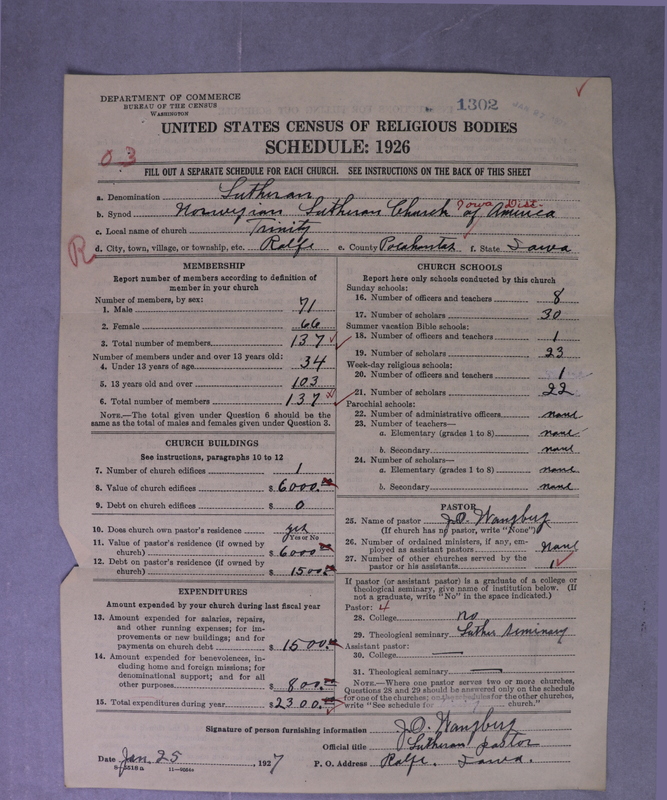 DEPARTMENT OF COMMERCE
BUREAU OF THE CENSUS
WASHINGTON
1302
UNITED STATES CENSUS OF RELIGIOUS BODIES
SCHEDULE: 1926
03
FILL OUT A SEPARATE SCHEDULE FOR EACH CHURCH. SEE INSTRUCTIONS ON THE BACK OF THIS SHEET
a. Denomination Lutheran
Iowa Dist.
b. Synod Norwegian Lutheran Church of America
c. Local name of church Trinity
R
d. City, town, village, or township, etc. Rolfe e. County Pocahontas f. State Iowa
MEMBERSHIP
Report number of members according to definition of member in your church
Number of members, by sex:
1. Male 71
2. Female 66
3. Total number of members 137
Number of members under and over 13 years old:
4. Under 13 years of age 34
5. 13 years old and over 103
6. Total number of members 137
NOTE.—The total given under Question 6 should be the
same as the total of males and females given under Question 3.
CHURCH BUILDINGS
See instructions, paragraphs 10 to 12
7. Number of church edifices 1
8. Value of church edifices $ 6000.00
9. Debt on church edifices $ 0
10. Does church own pastor's residence? yes
Yes or No
11. Value of pastor's residence (if owned by
church) $ 6000.00
12. Debt on pastor's residence (if owned by
church) $ 1500.00
EXPENDITURES
Amount expended by your church during last fiscal year
13. Amount expended for salaries, repairs,
and other running expenses; for im-
provements or new buildings; and for
payments on church debt $ 1500.00
14. Amount expended for benevolences, in-
cluding home and foreign missions; for
denominational support; and for all
other purposes $ 800.00
15. Total expenditures during year $ 2300.00
CHURCH SCHOOLS
Report here only schools conducted by this church
Sunday schools:
16. Number of officers and teachers 8
17. Number of scholars 30
Summer vacation Bible schools:
18. Number of officers and teachers 1
19. Number of scholars 23
Week-day religious schools:
20. Number of officers and teachers 1
21. Number of scholars 22
Parochial schools:
22. Number of administrative officers none
23. Number of teachers—
a. Elementary (grades 1 to 8) none
b. Secondary none
24. Number of scholars—
a. Elementary (grades 1 to 8) none
b. Secondary none
PASTOR
25. Name of pastor J.O. Wangberg
(If church has no pastor, write "None")
26. Number of ordained ministers, if any, em-
ployed as assistant pastors None
27. Number of other churches served by the
pastor or his assistants 1
If pastor (or assistant pastor) is a graduate of a college or
theological seminary, give name of institution below. (If
not a graduate, write "No" in the space indicated.)
Pastor: 4
28. College No
29. Theological seminary Luther Seminary
Assistant pastor:
30. College
31. Theological seminary
NOTE.—Where one pastor serves two or more churches,
Questions 28 and 29 should be answered only on the schedule
for one of the churches; on the schedules for the other churches,
write "See schedule for church."
Signature of person furnishing information J.O. Wangberg
Official title Lutheran pastor
Date Jan. 25, 1927 P. O. Address Rolfe, Iowa.